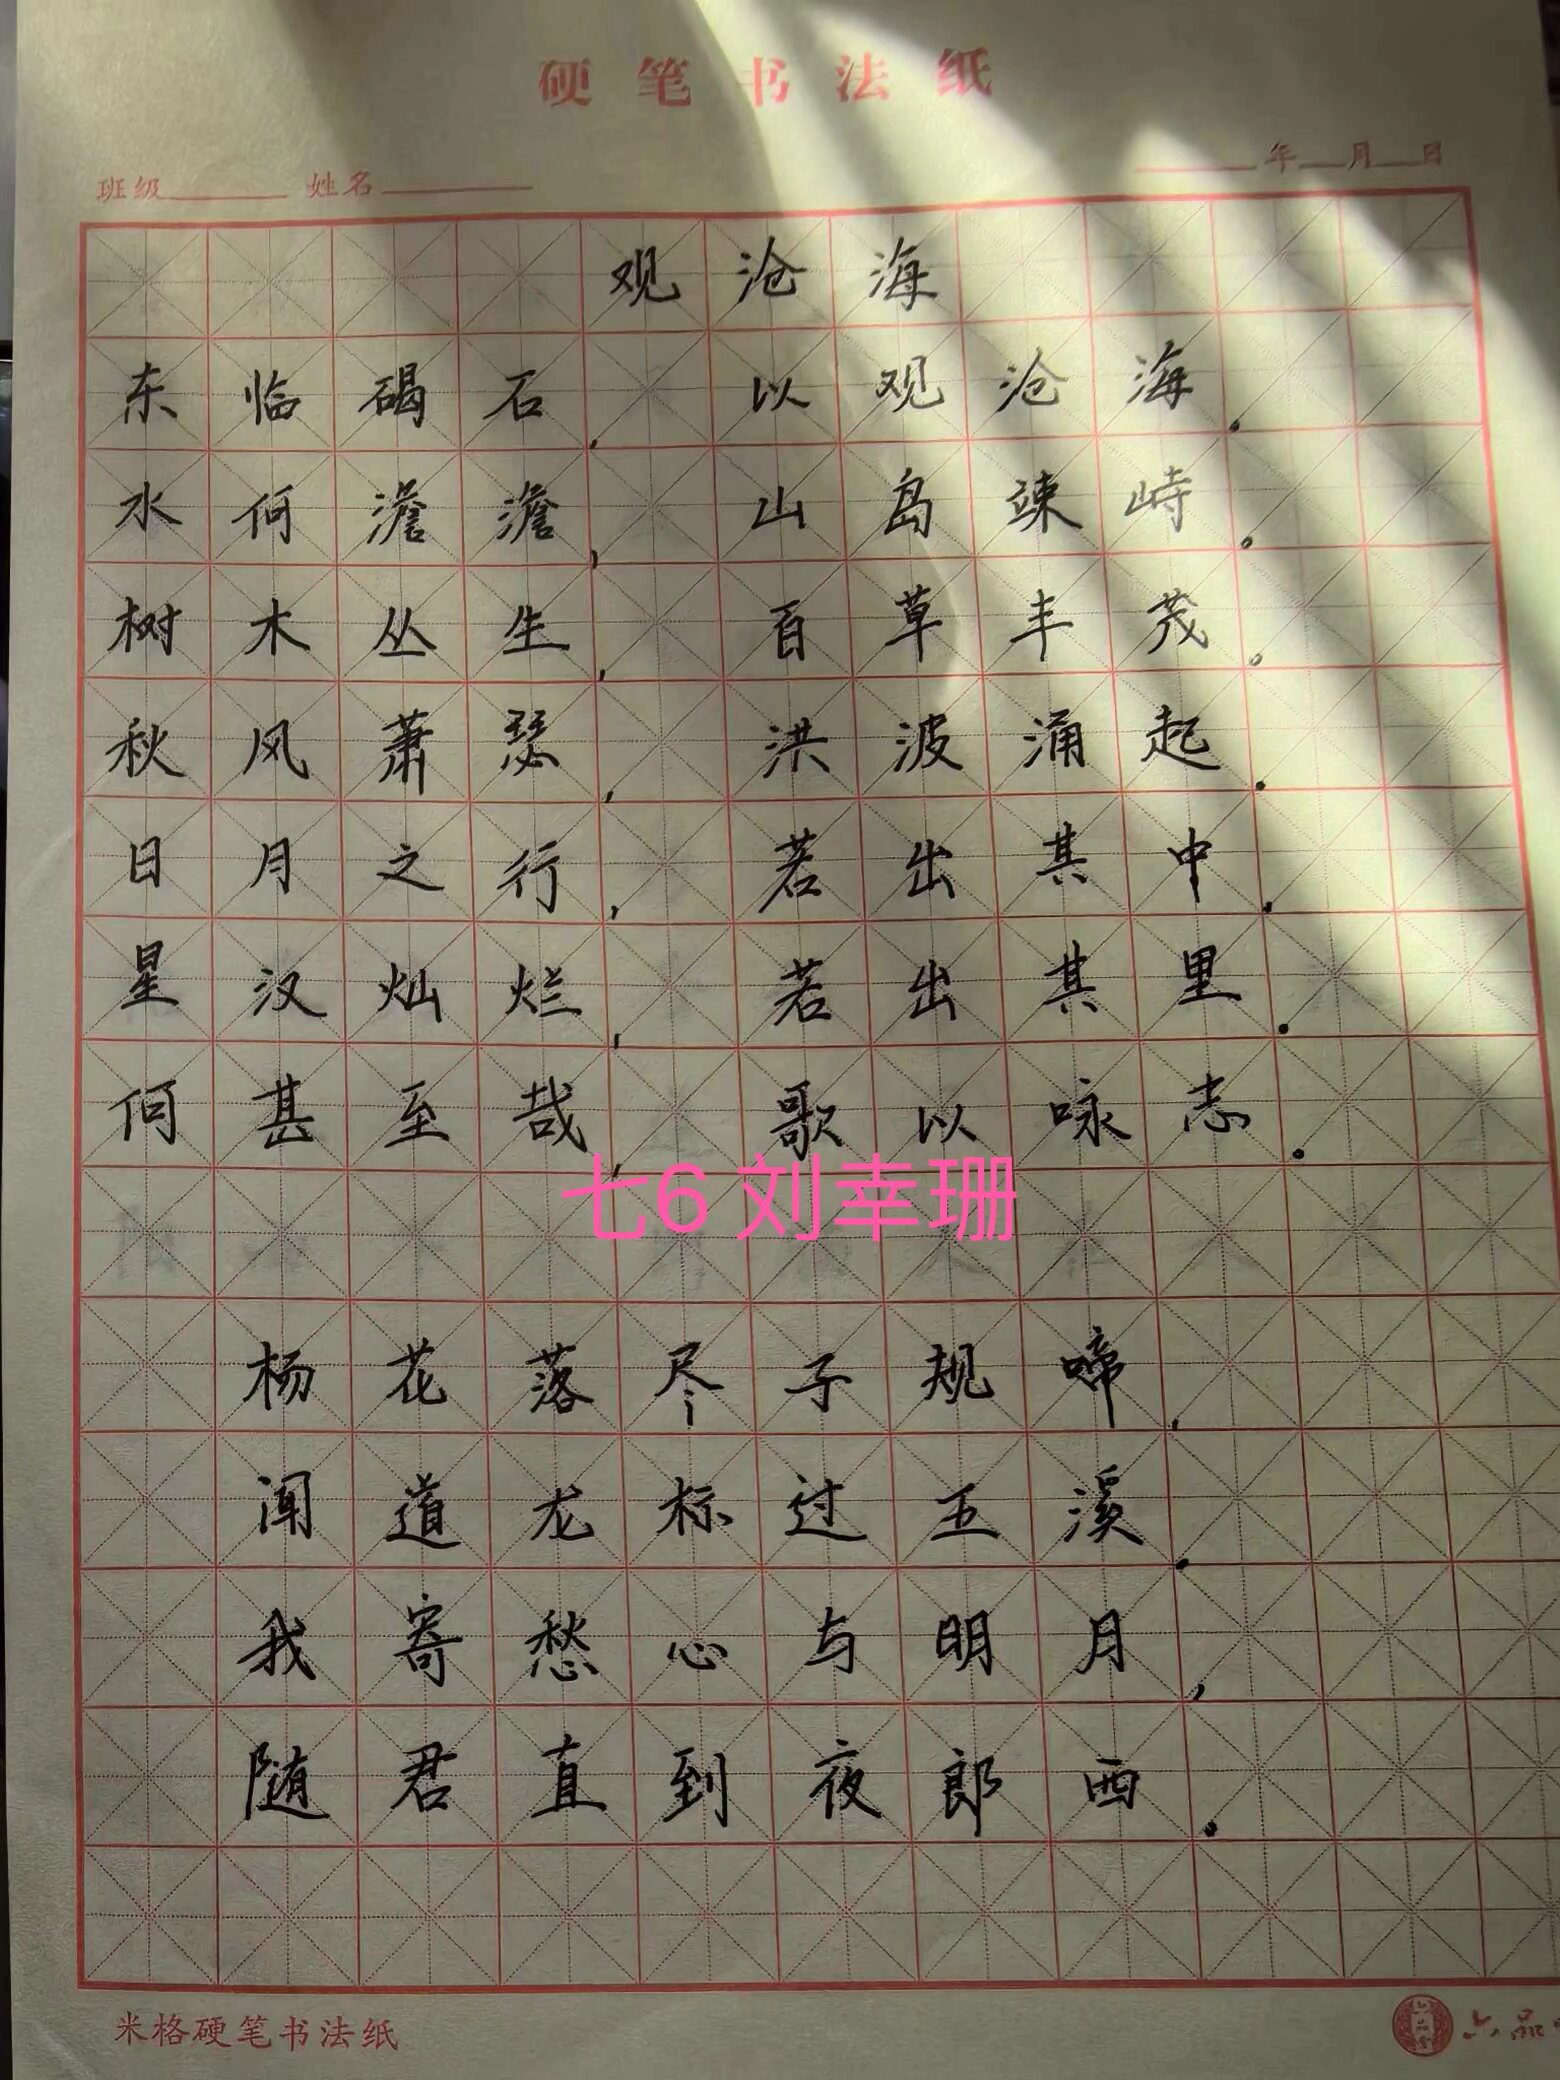 硬笔书法纸
班级 姓名 年 月 日
观沧海
东临碣石，以观沧海。
水何澹澹，山岛竦峙。
树木丛生，百草丰茂。
秋风萧瑟，洪波涌起。
日月之行，若出其中。
星汉灿烂，若出其里。
何甚至哉，歌以咏志。
七6 刘幸珊
杨花落尽子规啼，
闻道龙标过五溪。
我寄愁心与明月，
随君直到夜郎西。
米格硬笔书法纸
六品